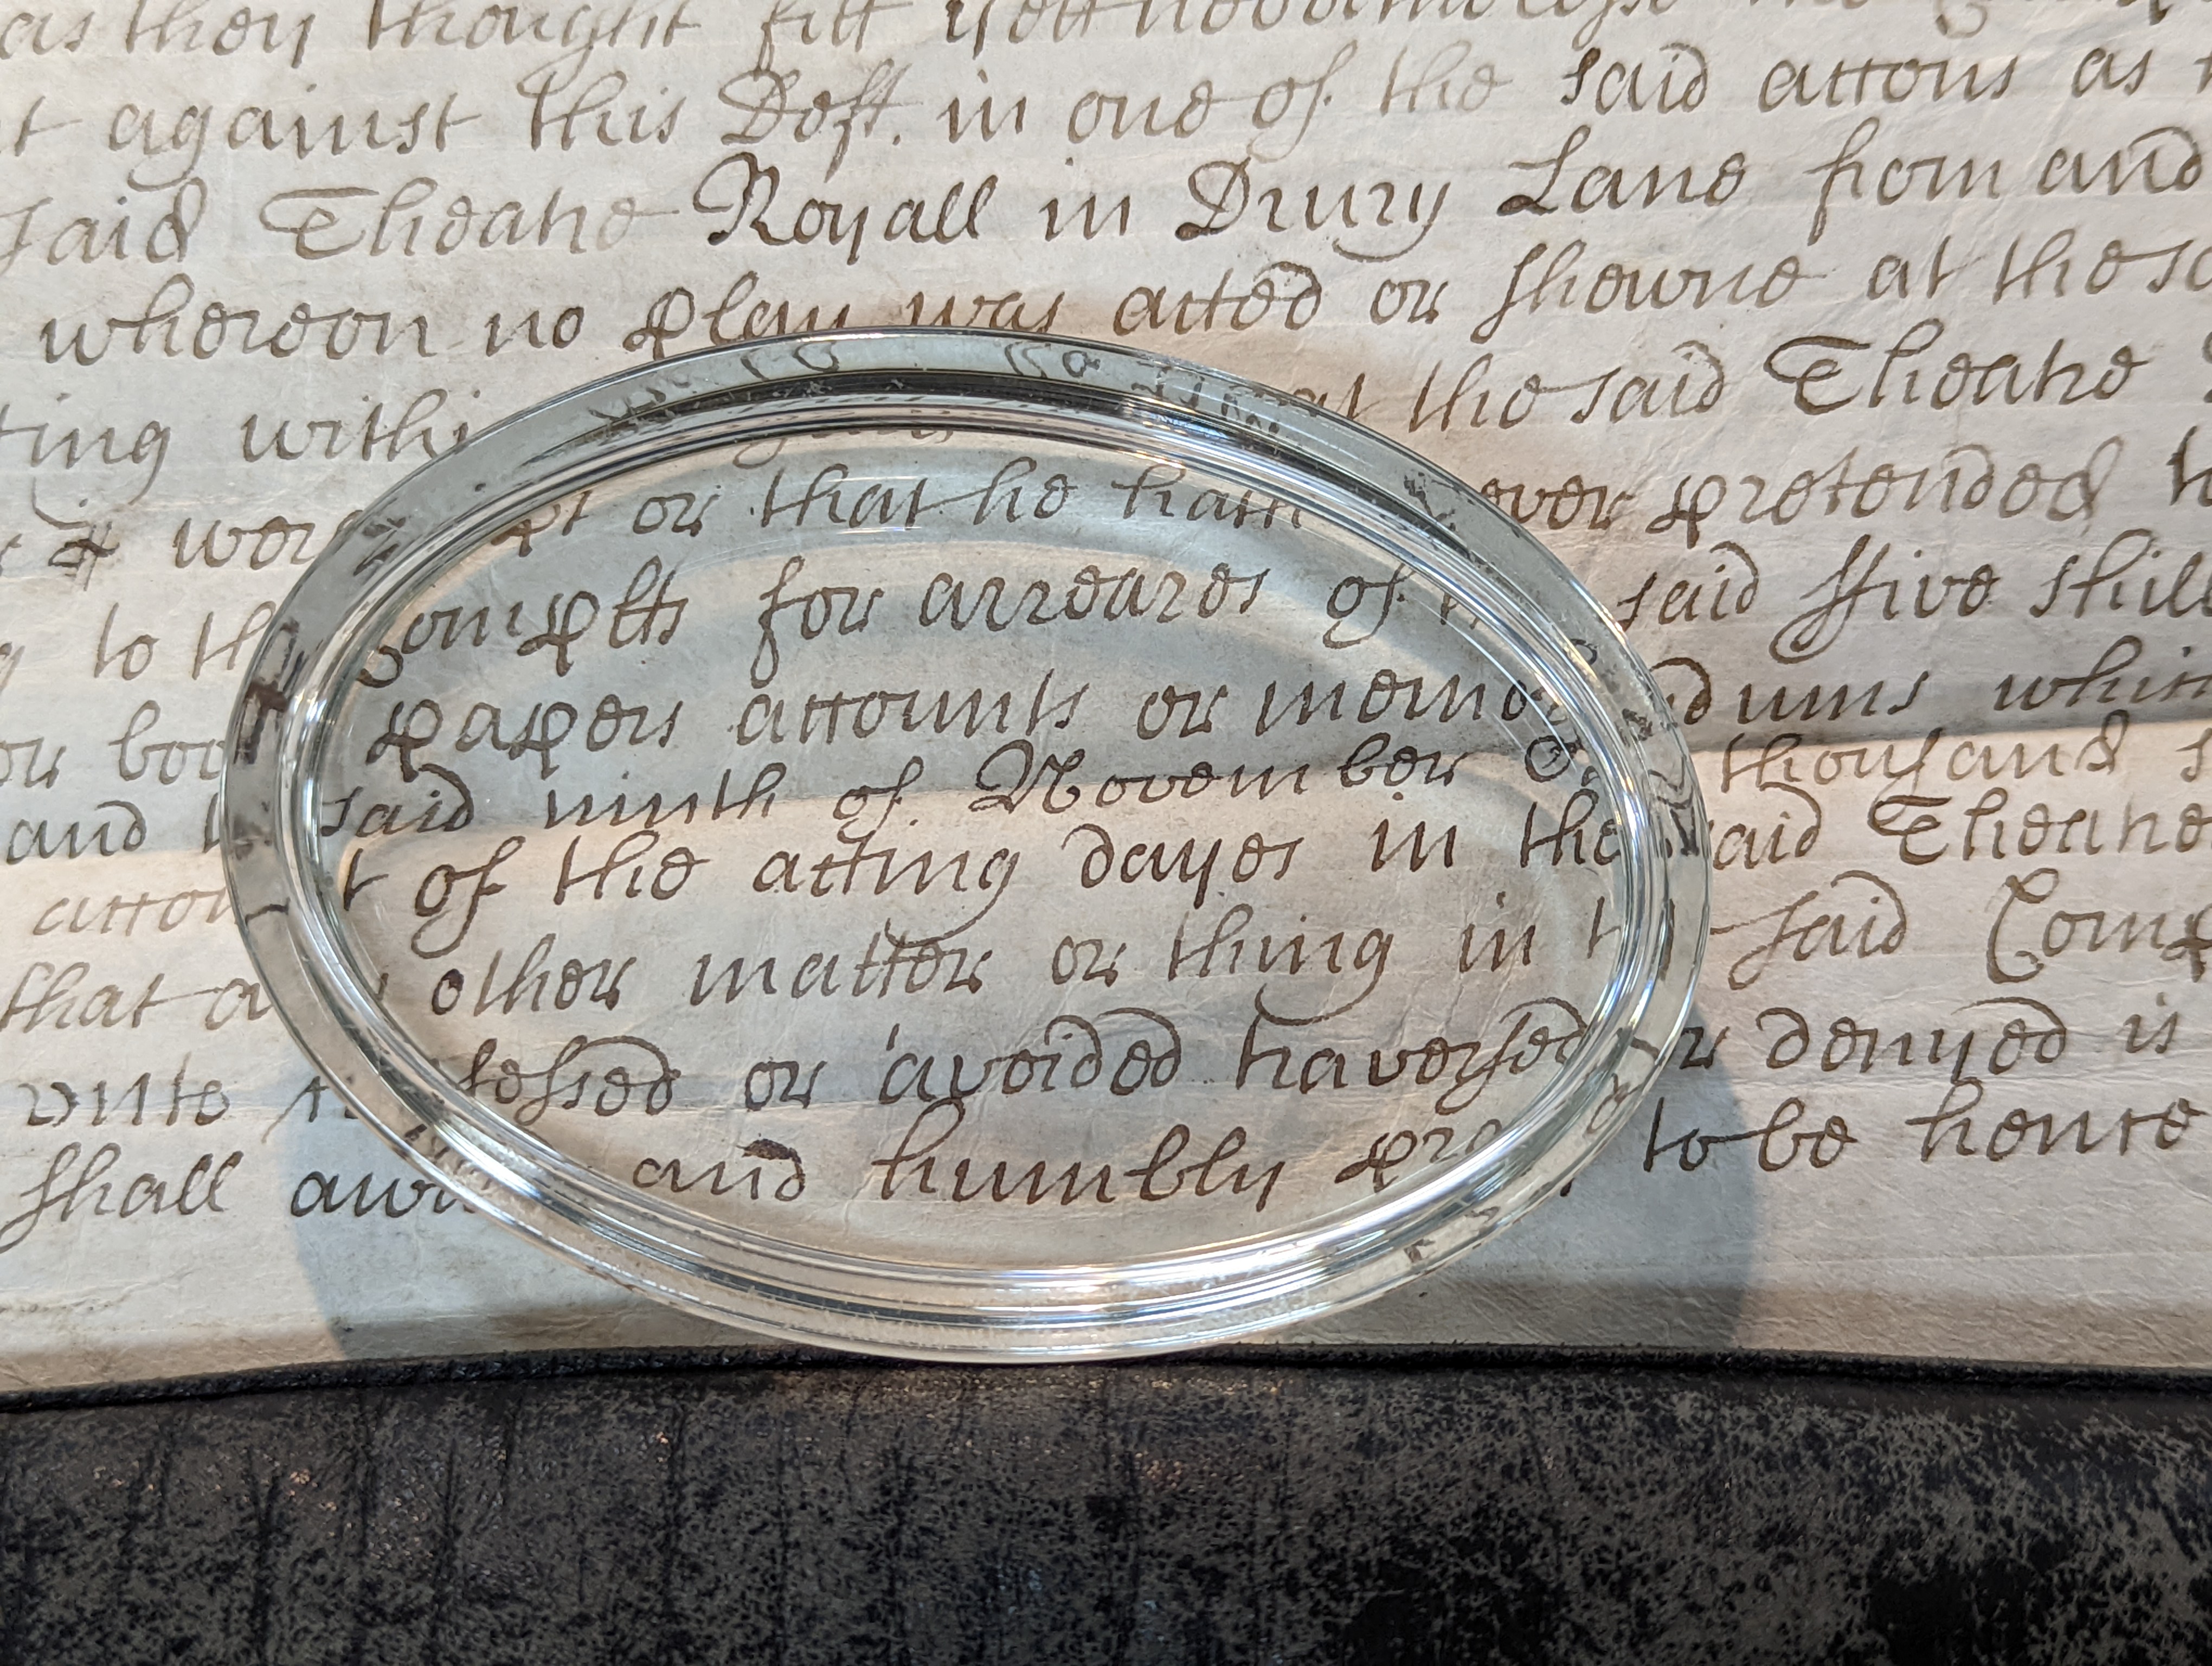 as they thought fitt yett nevertheless the
t against this Deft. in one of the said accons as
said Theatre Royall in Drury Lane from and
whereon no play was acted or shewne at the sa
ting withi at the said Theatre
wer pt or that he hath ever pretended t
to th Complts for arreares of said ffive shill
or boo papers accounts or memo dums which
and t said ninth of November thousand s
accon t of the acting dayes in the said Theatre
that a other matter or thing in t said Comp
vnto fessed or avoided traversed or denyed is
shall aw and humbly pra to be hence